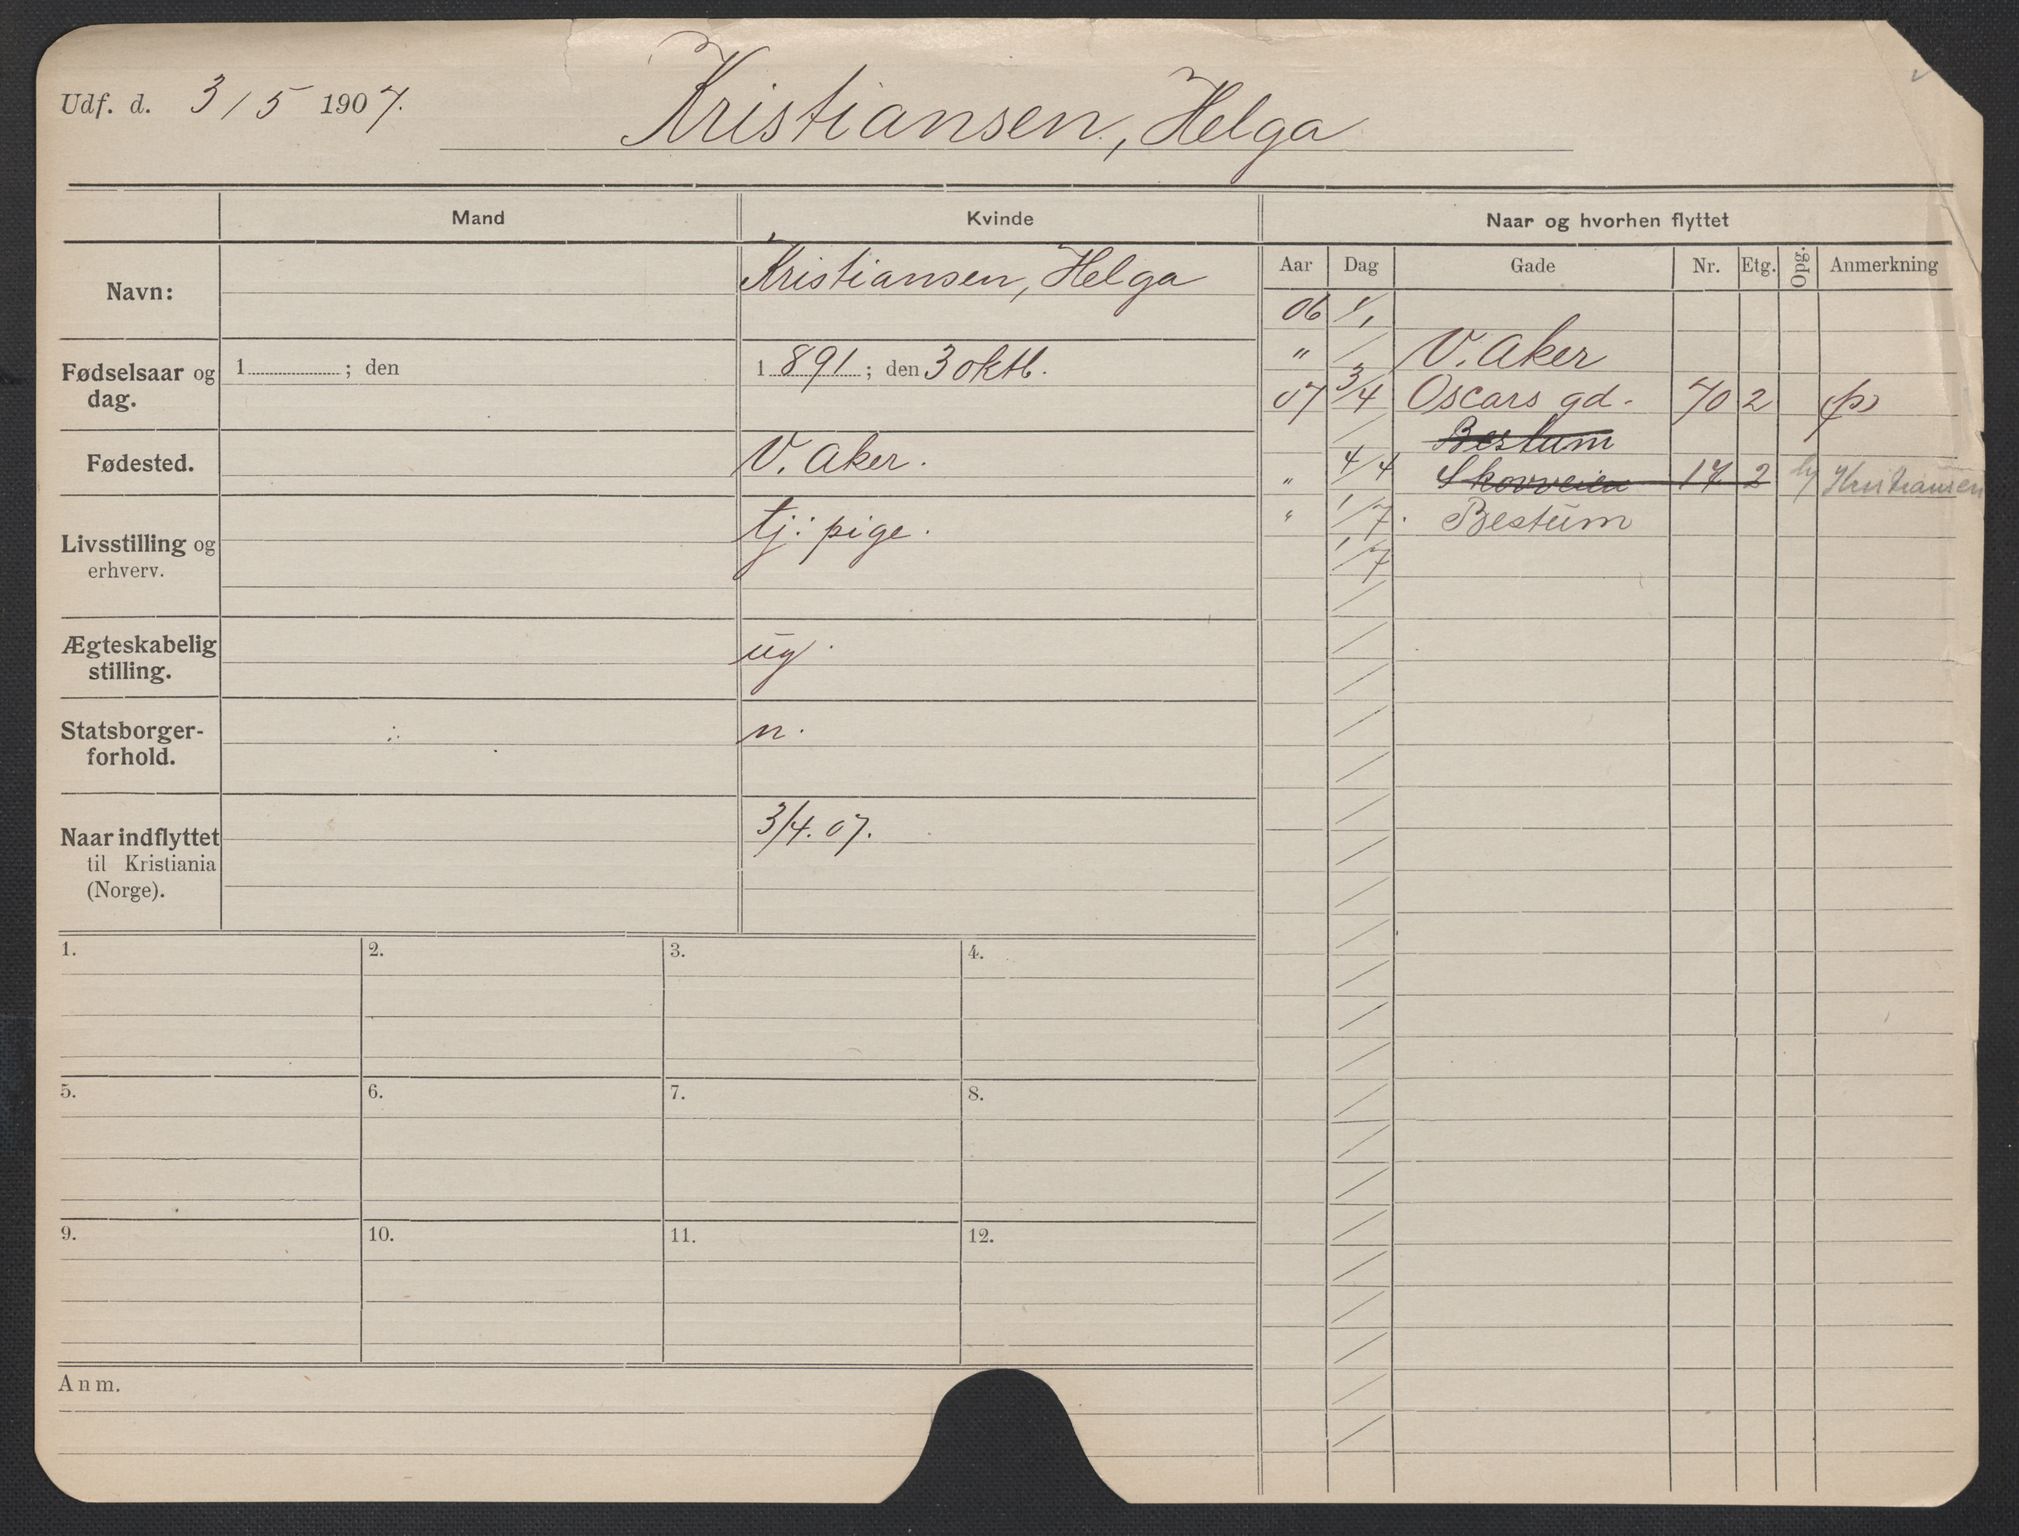 Udf. d. 3/5 1907.
Kristiansen, Helga
Mand
Kvinde
Naar og hvorhen flyttet
Aar Dag Gade Nr. Etg. Opg. Anmerkning
Navn:
Kristiansen, Helga
Fødselsaar og
dag.
1 ; den
1891; den 3 oktb.
Fødested.
V. Aker.
Livsstilling og
erhverv.
tj: pige.
Ægteskabelig
stilling.
ug.
Statsborger-
forhold.
n.
Naar indflyttet
til Kristiania
(Norge).
3/4. 07.
06 1/1
" / V. Aker
07 3/4 Oscars gd. 70 2 (p)
/ Bestum
" 4/4 Skovveien 17 2 Kristiansen
" 1/7. Bestum
1/7
1. 2. 3. 4.
5. 6. 7. 8.
9. 10. 11. 12.
Anm.